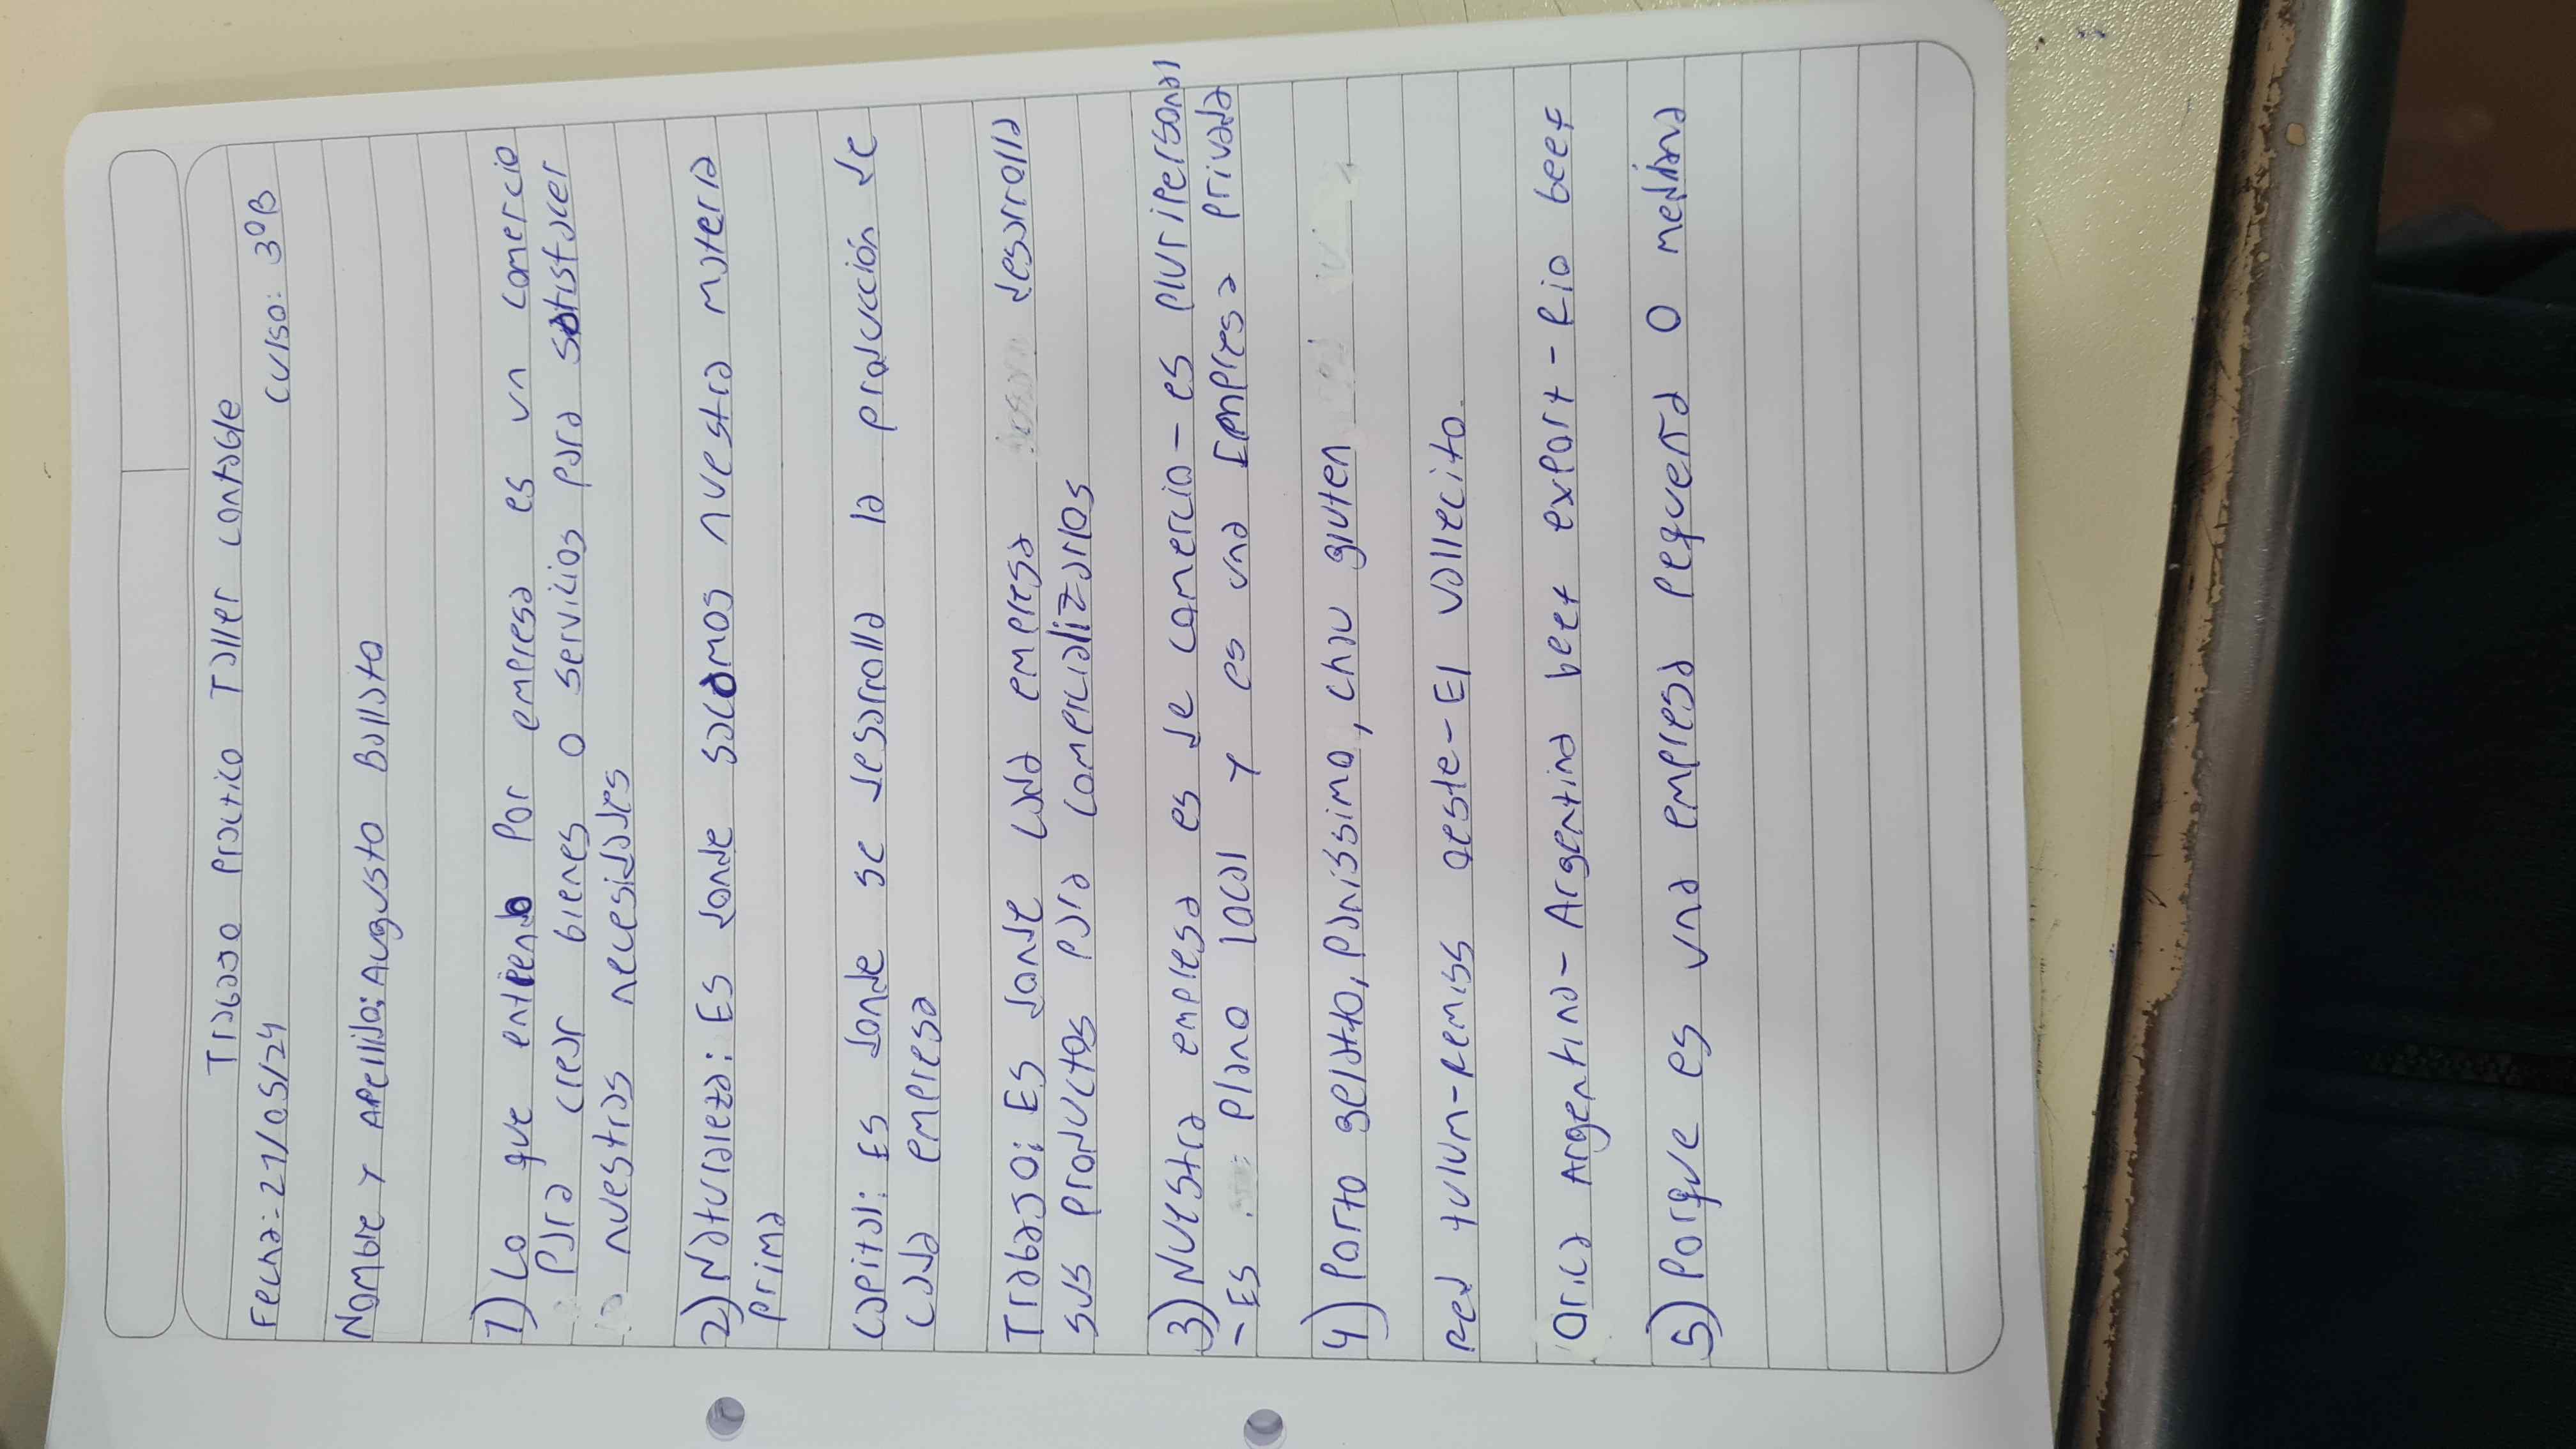 Trabajo Practico Taller contable
Fecha: 21/05/24 Curso: 3ºB
Nombre y Apellido: Augusto Ballato
1) Lo que entiendo por empresa es un comercio
para crear bienes o servicios para satisfacer
nuestras necesidades
2) Naturaleza: Es donde sacamos nuestra materia
prima
Capital: Es donde se desarrolla la producción de
cada empresa
Trabajo: Es donde cada empresa desarrolla
sus productos para comercializarlos
3) Nuestra empresa es de comercio - es pluripersonal
- Es plano local y es una Empresa privada
4) Porto gelatto, Panissimo, chau gluten
Red tulum - Remiss oeste - El vallecito.
Orica Argentina - Argentina beef export - Rio beef
5) Porque es una empresa pequeña o mediana